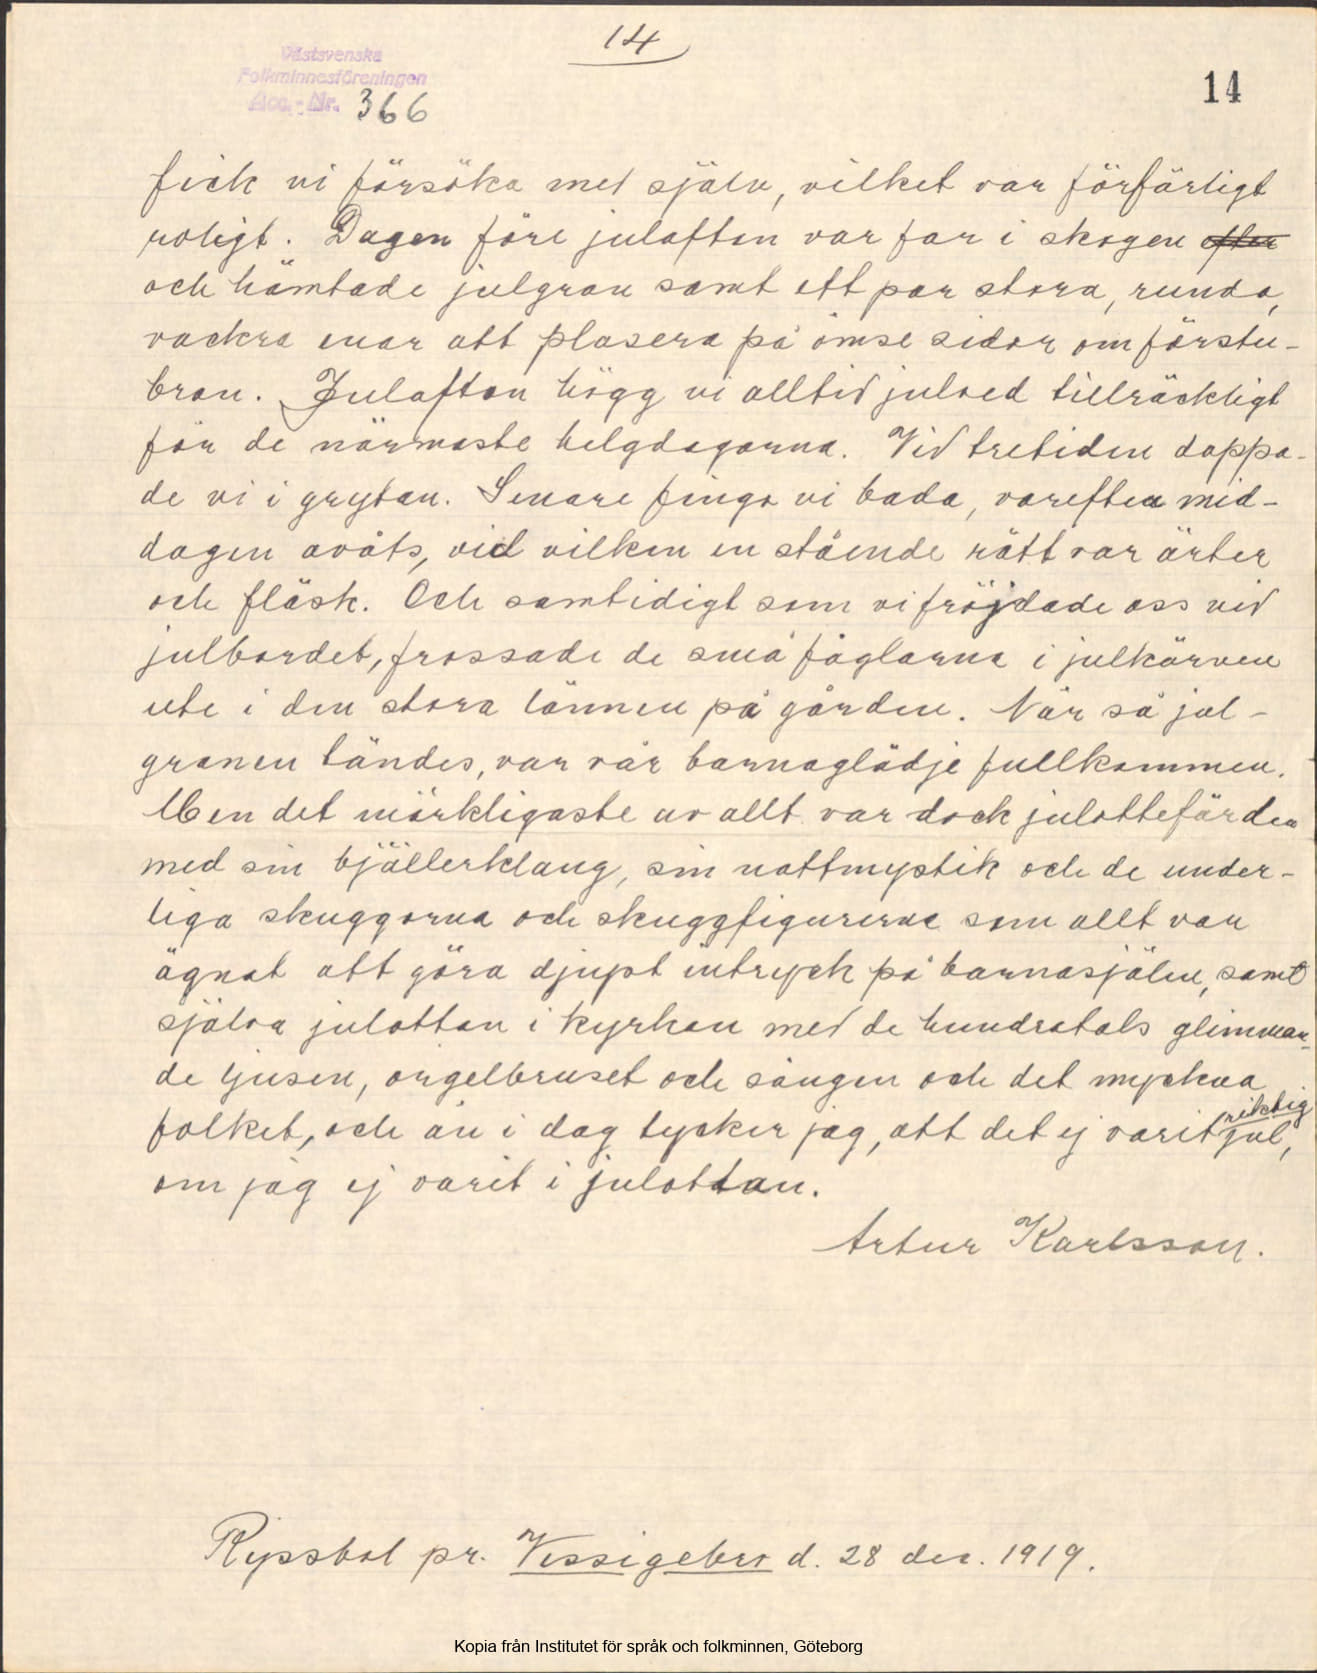 14
Västsvenska
Folkminnesföreningen
Acc.-Nr. 366
14
fick vi försöka med själv, vilket var förfärligt
roligt. Dagen före julafton var far i skogen efter
och hämtade julgran samt ett par stora, runda,
vackra enar att plasera på ömse sidor om förstu-
bron. Julafton högg vi alltid julved tillräckligt
för de närmaste helgdagarna. Vid tretiden doppa-
de vi i grytan. Senare fingo vi bada, varefter mid-
dagen avåts, vid vilken en stående rätt var ärter
och fläsk. Och samtidigt som vi fröjdade oss vid
julbordet, frossade de små fåglarna i julkärven
ute i den stora lönnen på gården. När så jul-
granen tändes, var vår barnaglädje fullkommen.
Men det märkligaste av allt var dock julottefärden
med sin bjällerklang, sin nattmystik och de under-
liga skuggorna och skuggfigurerna som allt var
ägnat att göra djupt intryck på barnasjälen, samt
själva julottan i kyrkan med de hundratals glimman-
de ljusen, orgelbruset och sången och det myckna
folket, och än i dag tycker jag, att det ej varit riktig jul,
om jag ej varit i julottan.
Artur Karlsson.
Ryssbol pr. Vessigebro d. 28 dec. 1919.
Kopia från Institutet för språk och folkminnen, Göteborg